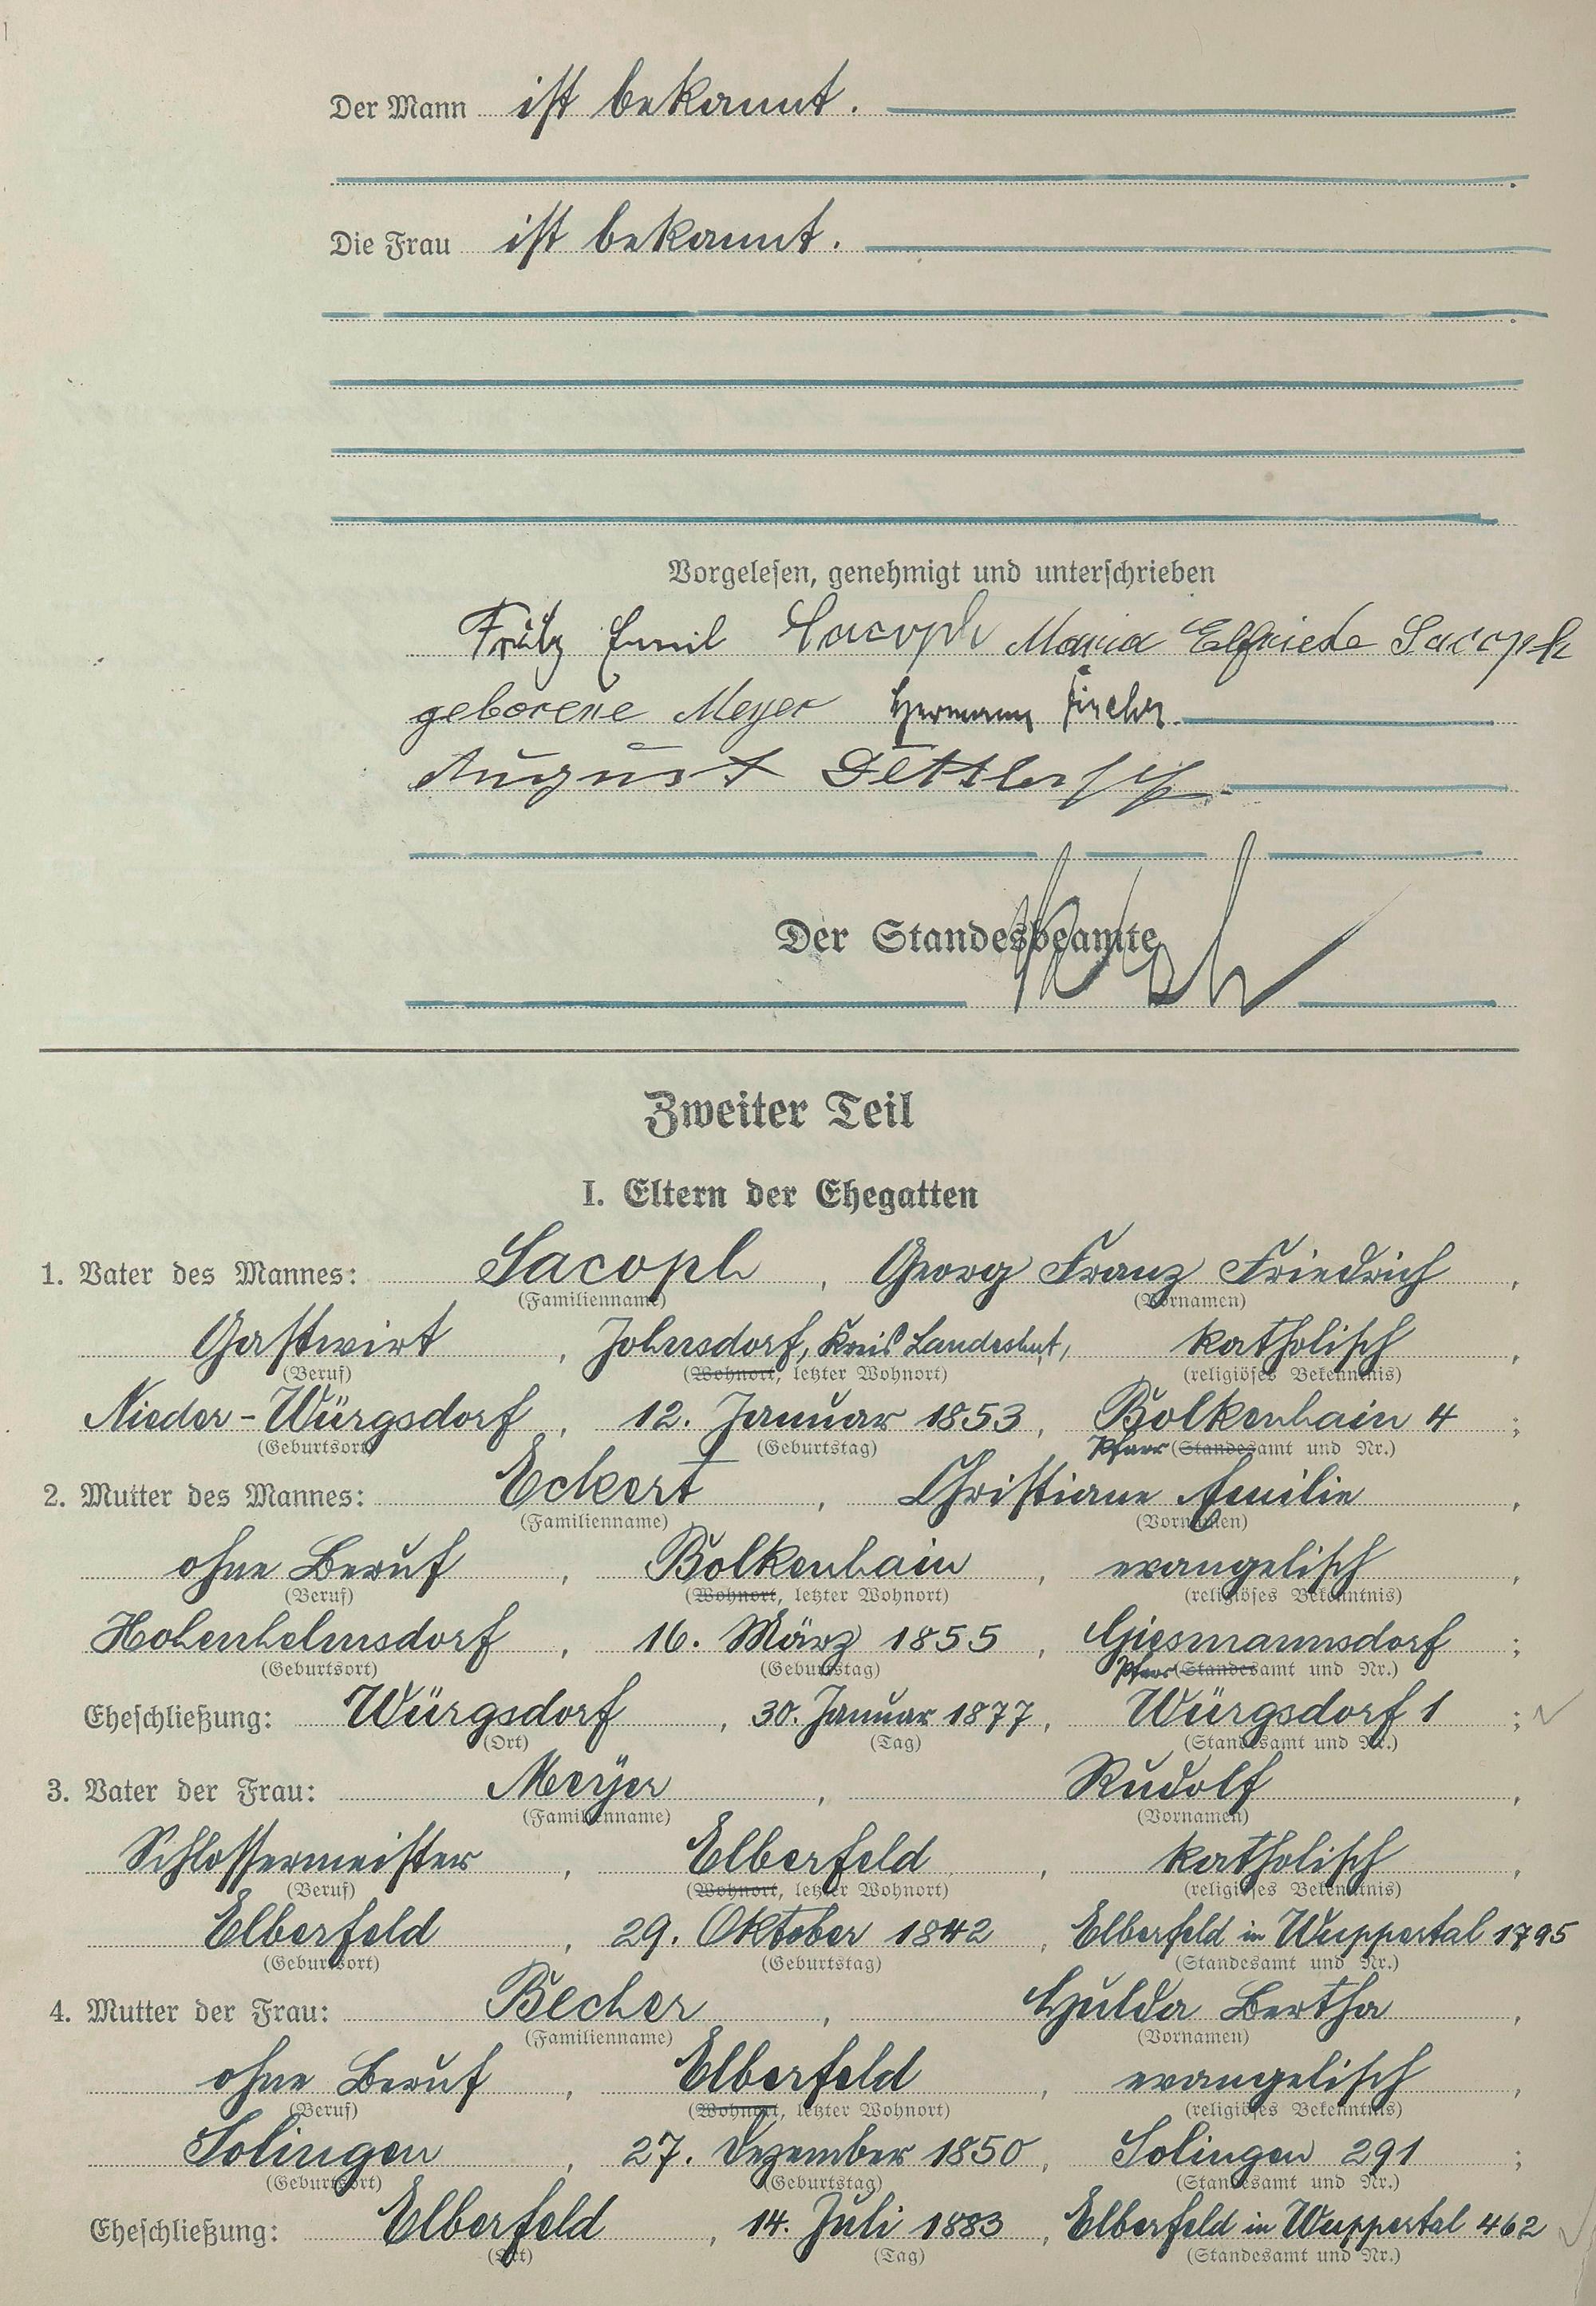 Der Mann ist bekannt.
Die Frau ist bekannt.
Vorgelesen, genehmigt und unterschrieben
Fritz Emil Sacoph Maria Elfriede Sacoph
geborene Meyer Hermann Fischer
August Dettlerff
Der Standesbeamte
Zweiter Teil
I. Eltern der Ehegatten
1. Vater des Mannes: Sacoph, Georg Franz Friedrich,
(Familienname) (Vornamen)
Gastwirt, Johnsdorf, Kreis Landeshut, katholisch,
(Beruf) (Wohnort, letzter Wohnort) (religiöses Bekenntnis)
Nieder-Würgsdorf, 12. Januar 1853, Bolkenhain 4;
(Geburtsort) (Geburtstag) Pfarr (Standesamt und Nr.)
2. Mutter des Mannes: Eckert, Christiane Emilie,
(Familienname) (Vornamen)
ohne Beruf, Bolkenhain, evangelisch,
(Beruf) (Wohnort, letzter Wohnort) (religiöses Bekenntnis)
Hohenhelmsdorf, 16. März 1855, Giesmannsdorf;
(Geburtsort) (Geburtstag) Pfarr (Standesamt und Nr.)
Eheschließung: Würgsdorf, 30. Januar 1877, Würgsdorf 1;
(Ort) (Tag) (Standesamt und Nr.)
3. Vater der Frau: Meyer, Rudolf,
(Familienname) (Vornamen)
Schlossermeister, Elberfeld, katholisch,
(Beruf) (Wohnort, letzter Wohnort) (religiöses Bekenntnis)
Elberfeld, 29. Oktober 1842, Elberfeld in Wuppertal 1795
(Geburtsort) (Geburtstag) (Standesamt und Nr.)
4. Mutter der Frau: Becher, Hulda Bertha,
(Familienname) (Vornamen)
ohne Beruf, Elberfeld, evangelisch,
(Beruf) (Wohnort, letzter Wohnort) (religiöses Bekenntnis)
Solingen, 27. Dezember 1850, Solingen 291;
(Geburtsort) (Geburtstag) (Standesamt und Nr.)
Eheschließung: Elberfeld, 14. Juli 1883, Elberfeld in Wuppertal 462
(Ort) (Tag) (Standesamt und Nr.)